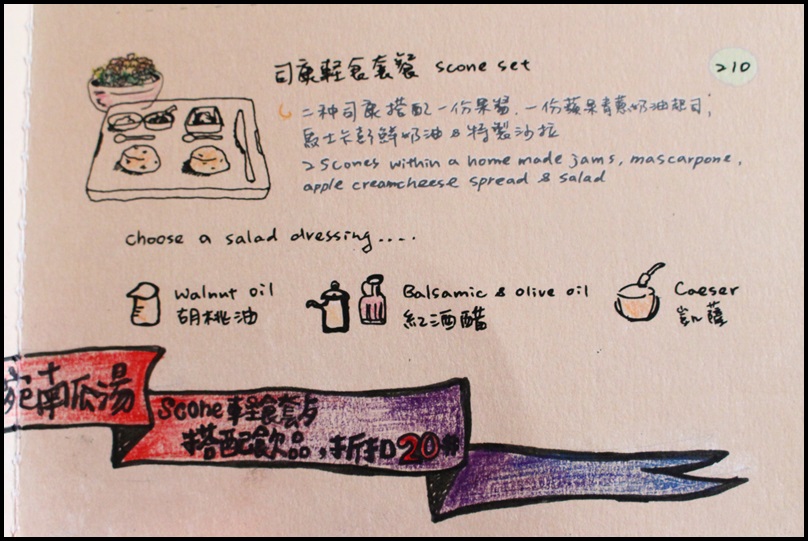 司康輕食套餐 scone set
210
二种司康搭配一份果醬，一份蘋果青蔥奶油起司，
馬士卡彭鮮奶油&特製沙拉
2 scones within a home made jams, mascarpone,
apple creamcheese spread & salad
choose a salad dressing....
Walnut oil
胡桃油
Balsamic & olive oil
紅酒醋
Caeser
凱薩
南瓜湯
Scone 輕食套餐
搭配飲品，折扣20